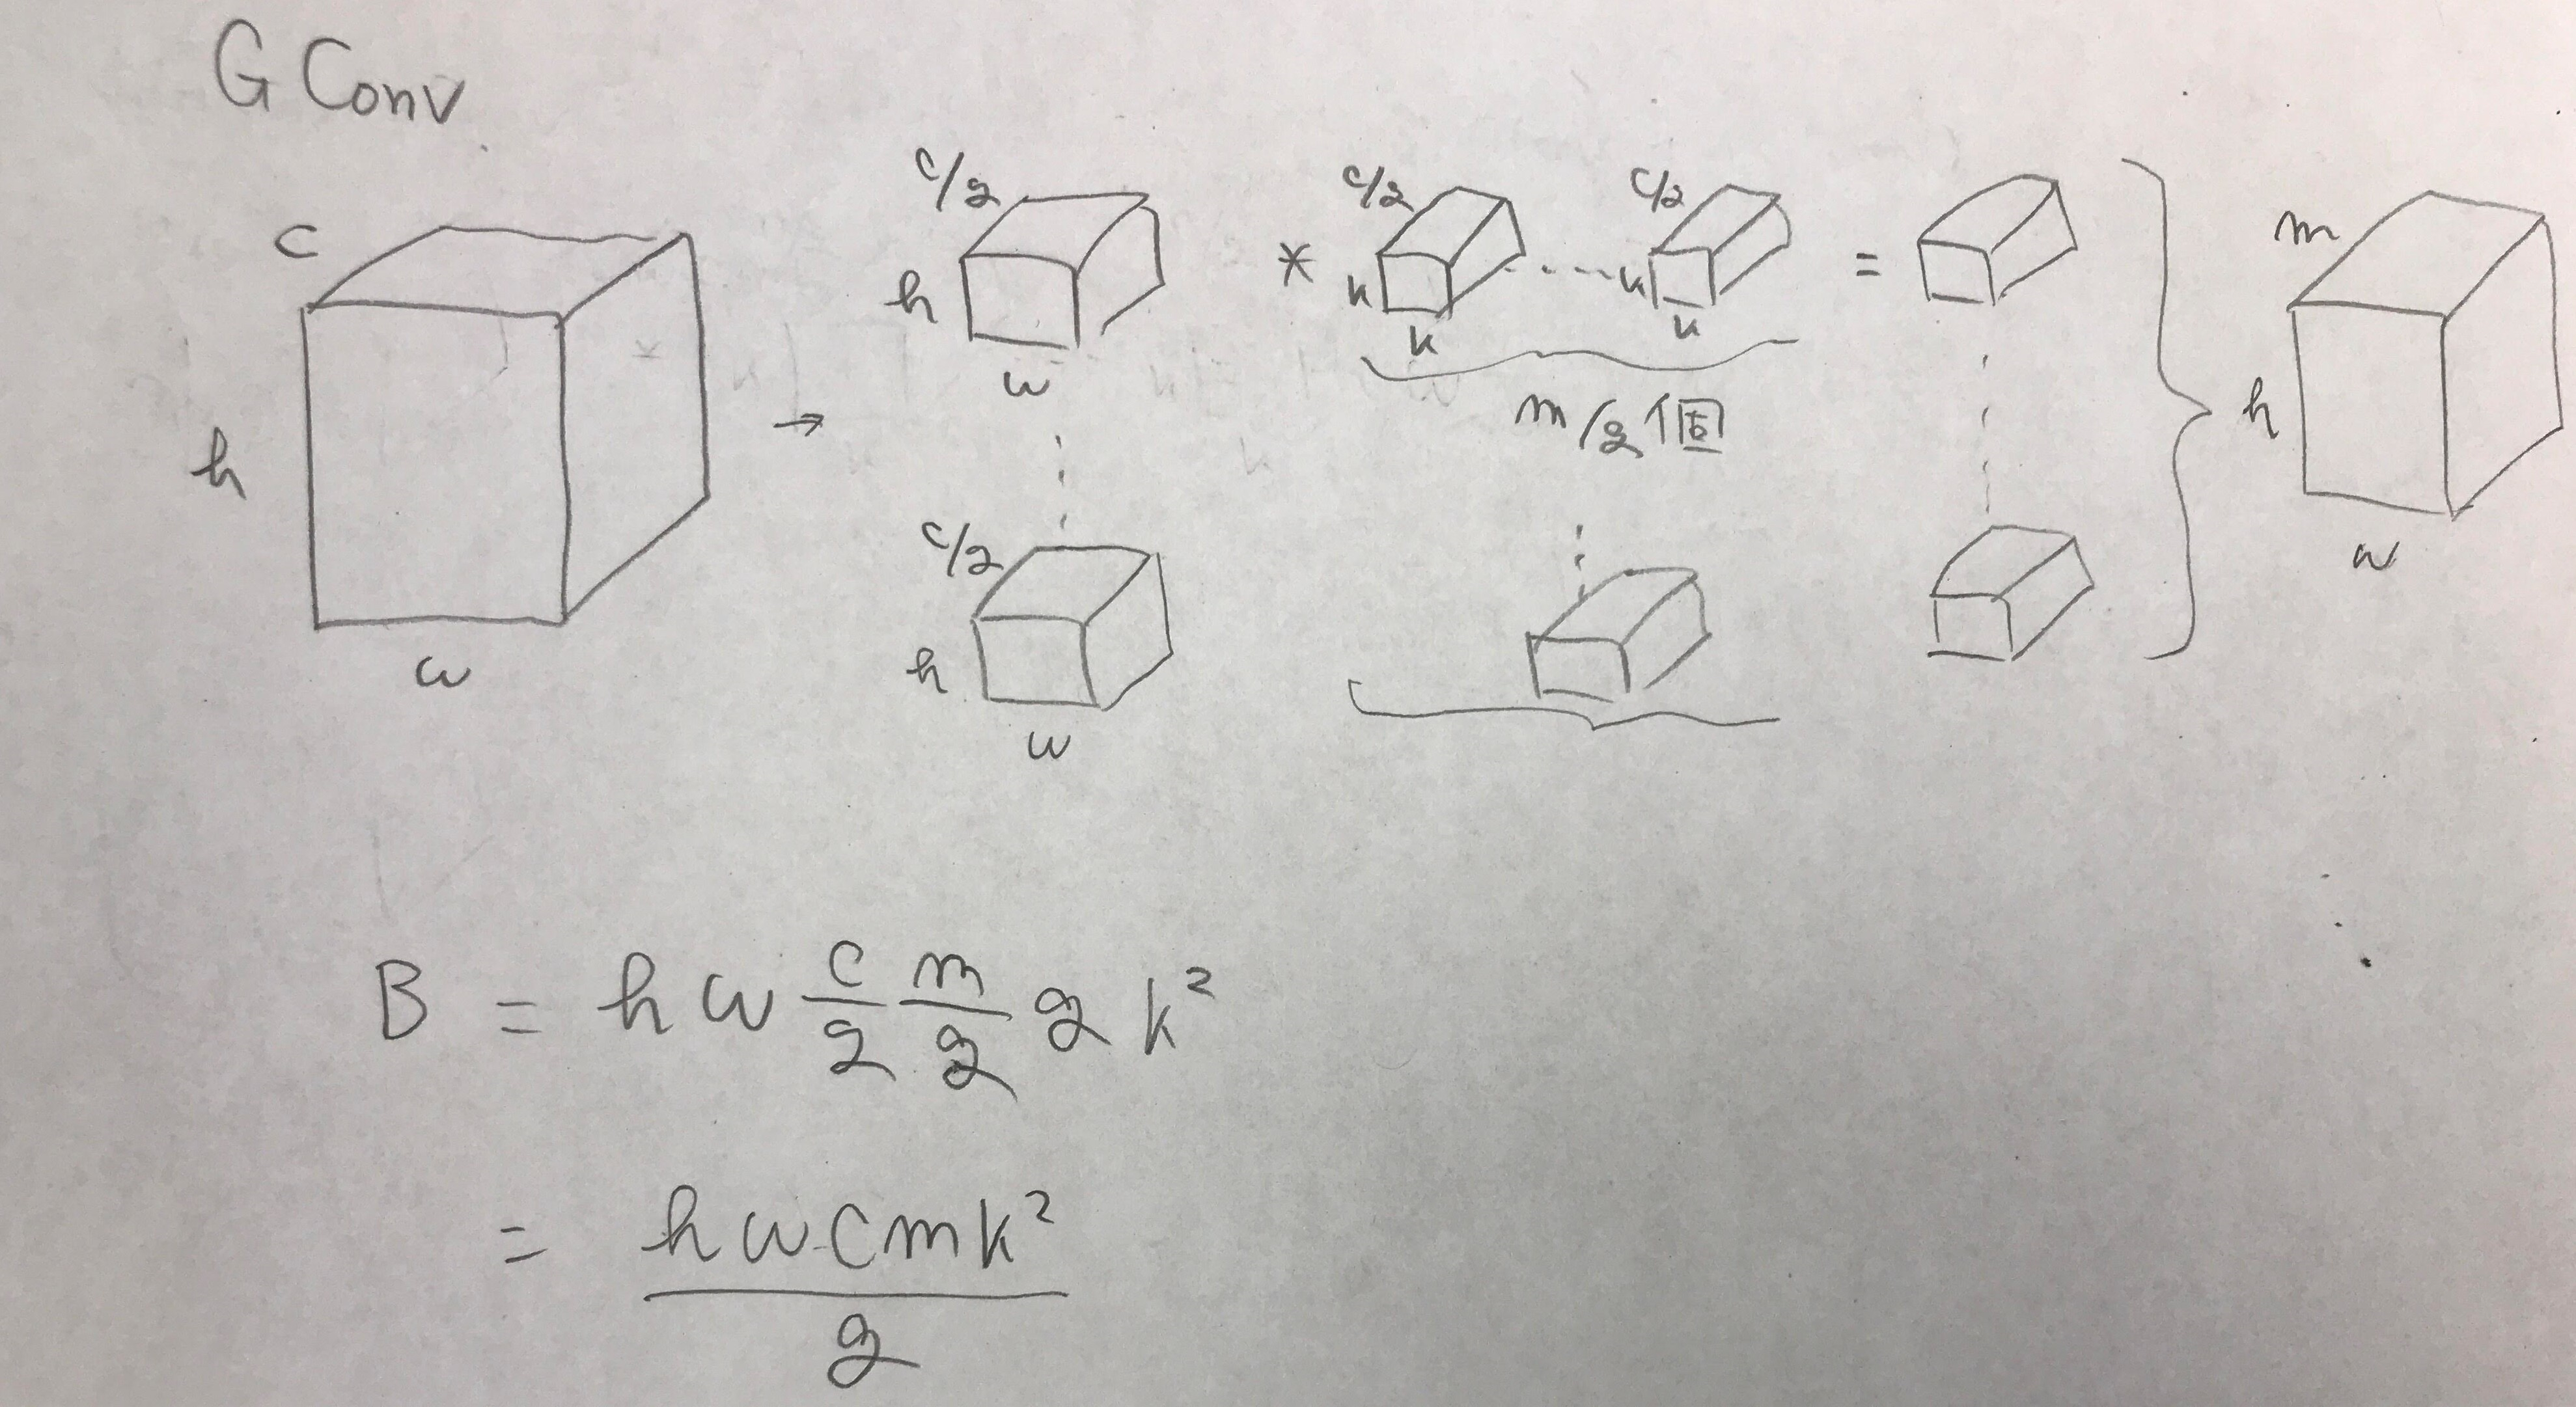 G Conv
c
h
w
→
c/g
h
w
c/g
h
w
*
c/g
k
k
c/g
k
k
m/g個
=
m
h
w
B = h w c/g m/g g k²
= h w c m k² / g